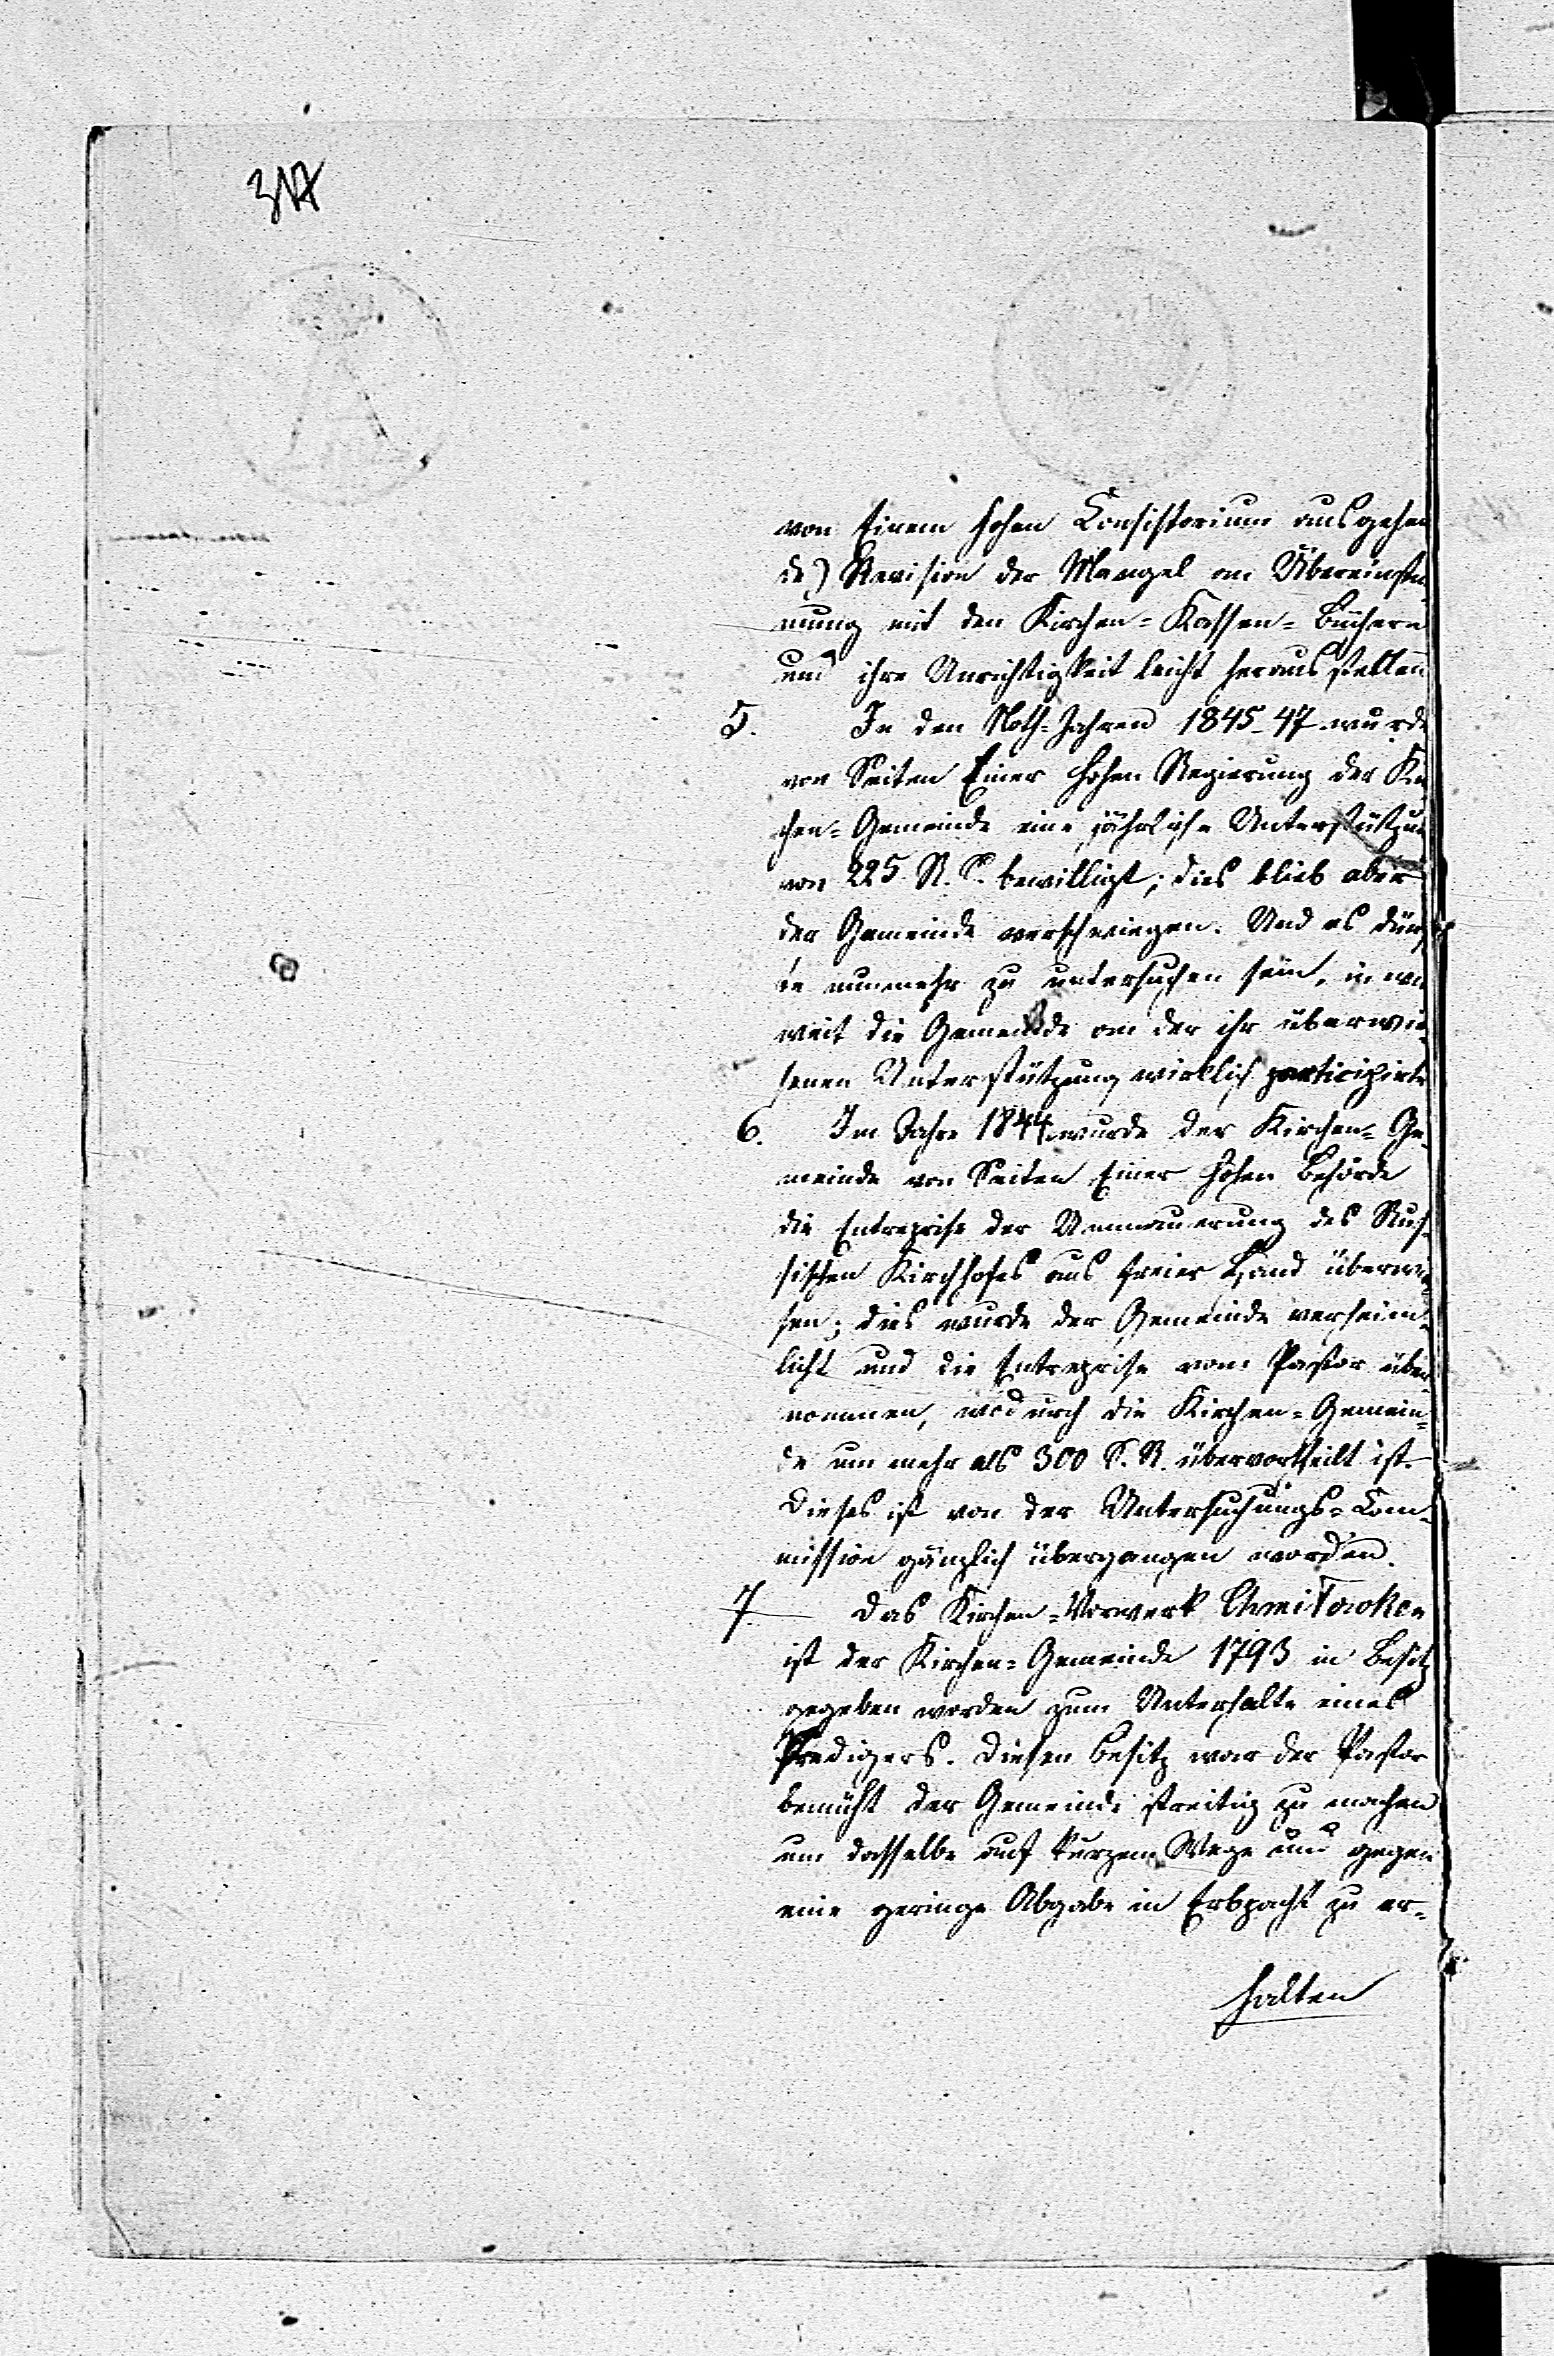 317
von Einem Hohen Consistorium ausgehen
de) Revision der Mangel an Übereinstim
mung mit den Kirchen-Kassen-Büchern
und ihre Unrichtigkeit leicht herausstellen
5. In den Noth-Jahren 1845-47 wurde
von Seiten Einer Hohen Regierung der Kir
chen-Gemeinde eine jährliche Unterstützung
von 225 R. S. bewilligt; dies blieb aber
der Gemeinde verschwiegen. Und es dürf
te nunmehr zu untersuchen sein, in wie
weit die Gemeinde an der ihr überwie
senen Unterstützung wirklich participirte
6. Im Jahre 1844 wurde der Kirchen-Ge-
meinde von Seiten Einer Hohen Behörde
die Entreprise der Ummauerung des Rus-
sischen Kirchhofes aus freier Hand überwie
sen; dies wurde der Gemeinde verheim-
licht und die Entreprise vom Pastor über
nommen, wodurch die Kirchen-Gemein-
de um mehr als 300 S. R. übervortheilt ist.
Dieses ist von der Untersuchungs-Com-
mission gänzlich übergangen worden.
7. Das Kirchen-Vorwerk
ist der Kirchen-Gemeinde 1793 in Besitz
gegeben worden zum Unterhalte eines
Predigers. Diesen Besitz war der Pastor
bemüht der Gemeinde streitig zu machen
um dasselbe auf kurzem Wege und gegen
eine geringe Abgabe in Erbpacht zu er-
halten